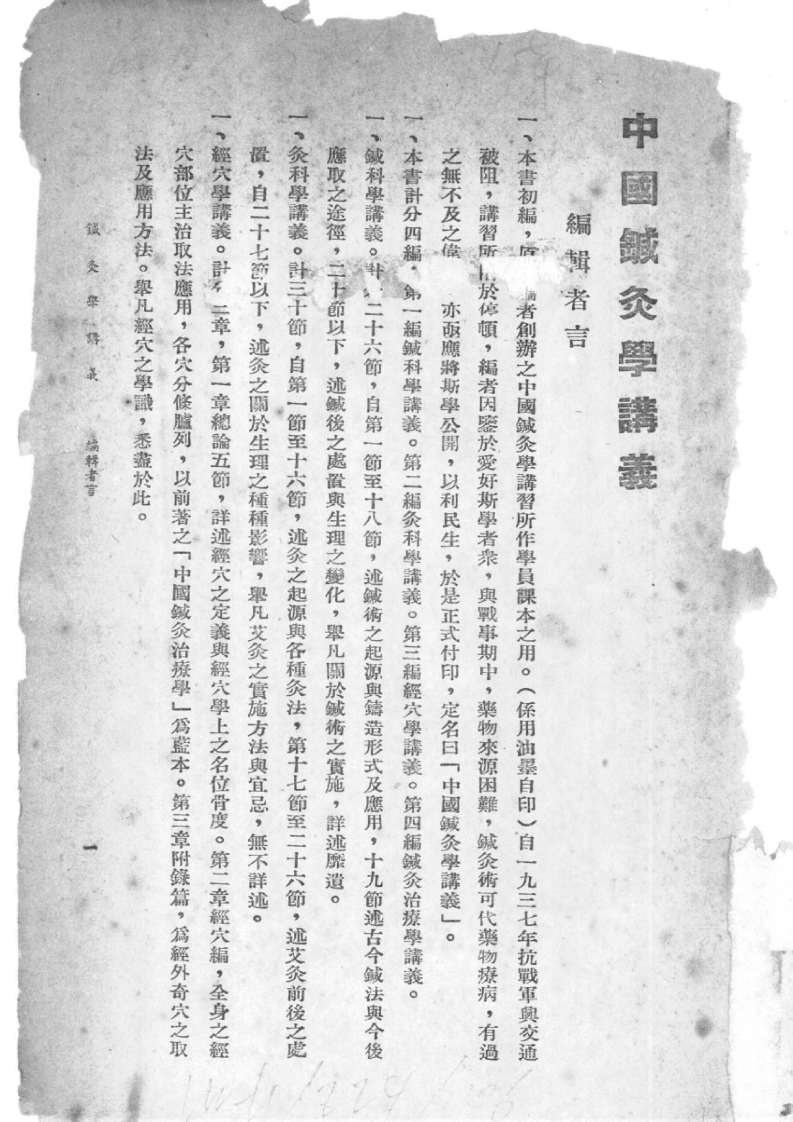 中國鍼灸學講義
編輯者言
一、本書初編，原 編者創辦之中國鍼灸學講習所作學員課本之用。（係用油墨自印）自一九三七年抗戰軍興交通
被阻，講習所 於停頓，編者因鑒於愛好斯學者衆，與戰事期中，藥物來源困難，鍼灸術可代藥物療病，有過
之無不及之偉 亦亟應將斯學公開，以利民生，於是正式付印，定名曰「中國鍼灸學講義」。
一、本書計分四編，第一編鍼科學講義。第二編灸科學講義。第三編經穴學講義。第四編鍼灸治療學講義。
一、鍼科學講義。計 二十六節，自第一節至十八節，述鍼術之起源與鑄造形式及應用，十九節述古今鍼法與今後
應取之途徑，二十節以下，述鍼後之處置與生理之變化，舉凡關於鍼術之實施，詳述靡遺。
一、灸科學講義。計三十節，自第一節至十六節，述灸之起源與各種灸法，第十七節至二十六節，述艾灸前後之處
置，自二十七節以下，述灸之關於生理之種種影響，舉凡艾灸之實施方法與宜忌，無不詳述。
一、經穴學講義。計 三章，第一章總論五節，詳述經穴之定義與經穴學上之名位骨度。第二章經穴編，全身之經
穴部位主治取法應用，各穴分條臚列，以前著之「中國鍼灸治療學」爲藍本。第三章附錄篇，爲經外奇穴之取
法及應用方法。舉凡經穴之學識，悉盡於此。
鍼灸學講義 編輯者言 一